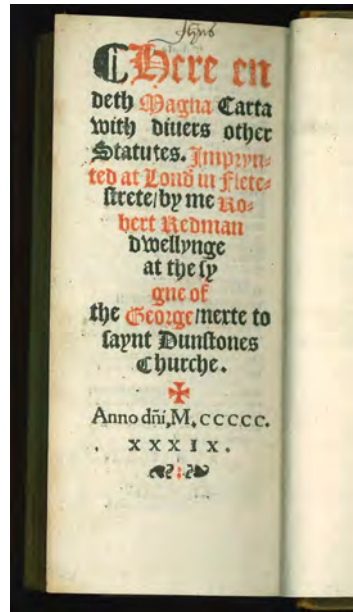 ¶Here en
deth Magna Carta
with diuers other
Statutes. Impryn⸗
ted at Lond in Flete⸗
strete/by me Ro⸗
bert Redman
dwellynge
at the sy
gne of
the George/nexte to
saynt Dunstones
Churche.
✠
Anno dn̄i, M. CCCCC.
. X X X I X .